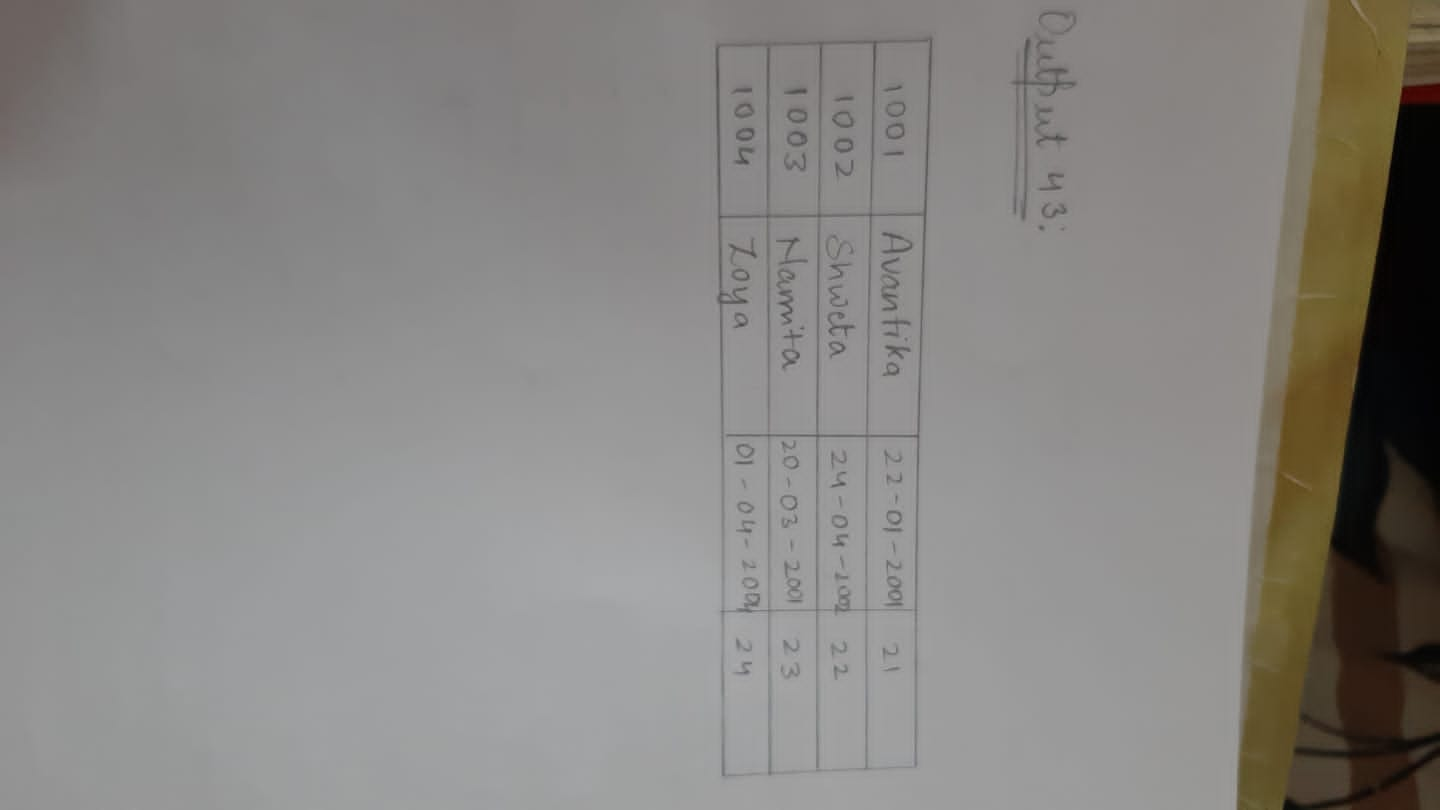 Output 43:
1001 Avantika 22-01-2001 21
1002 Shweta 24-04-2002 22
1003 Namita 20-03-2001 23
1004 Zoya 24